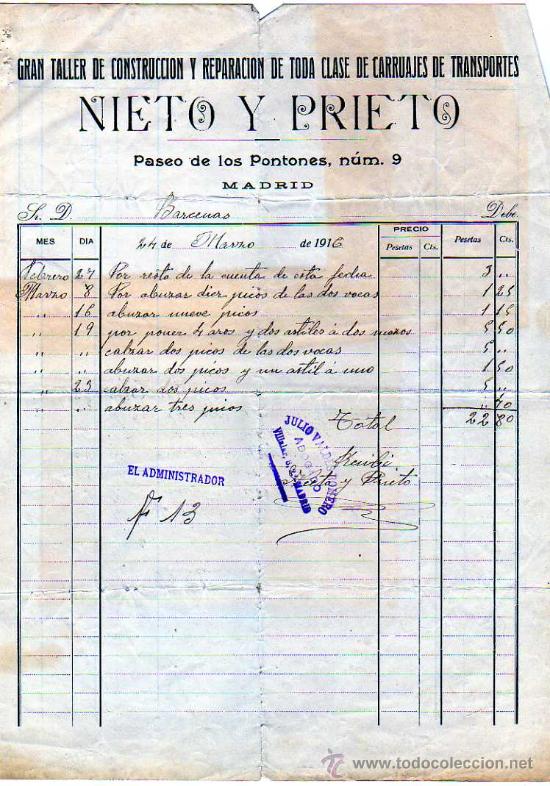 GRAN TALLER DE CONSTRUCCION Y REPARACION DE TODA CLASE DE CARRUAJES DE TRANSPORTES
NIETO Y PRIETO
Paseo de los Pontones, núm. 9
MADRID
Sr. D. Barcenas Debe
MES DIA 24 de Marzo de 1916 PRECIO Pesetas Cts. Pesetas Cts.
Febrero 27 Por resto de la cuenta de esta fecha 3 "
Marzo 8 Por abuzar diez picos de las dos vocas 1 25
" 16 abuzar nueve picos 1 15
" 19 por poner 4 aros y dos astiles á dos mazos 5 50
" " calzar dos picos de las dos vocas 5 "
" " abuzar dos picos y un astil á uno 1 50
" 23 calzar dos picos 5 "
" " abuzar tres picos " 40
Total 22 80
Recibi
Nieto y Prieto
JULIO VALDE ROMERO
ABOGADO
Villalar, MADRID
EL ADMINISTRADOR
F 13
www.todocoleccion.net